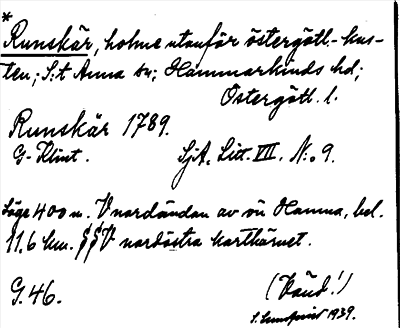 *
Runskär, holme utanför östergötl.-kus-
ten; S:t Anna sn; Hammarkinds hd;
Östergötl. l.
Runskär 1789.
G. Klint. SjA. Litt. VIII. N:o 9.
Läge 400 m. V nordändan av ön Hamna, bel.
11,6 km. SSV nordöstra karthörnet.
G. 46. (Vänd!)
1939.